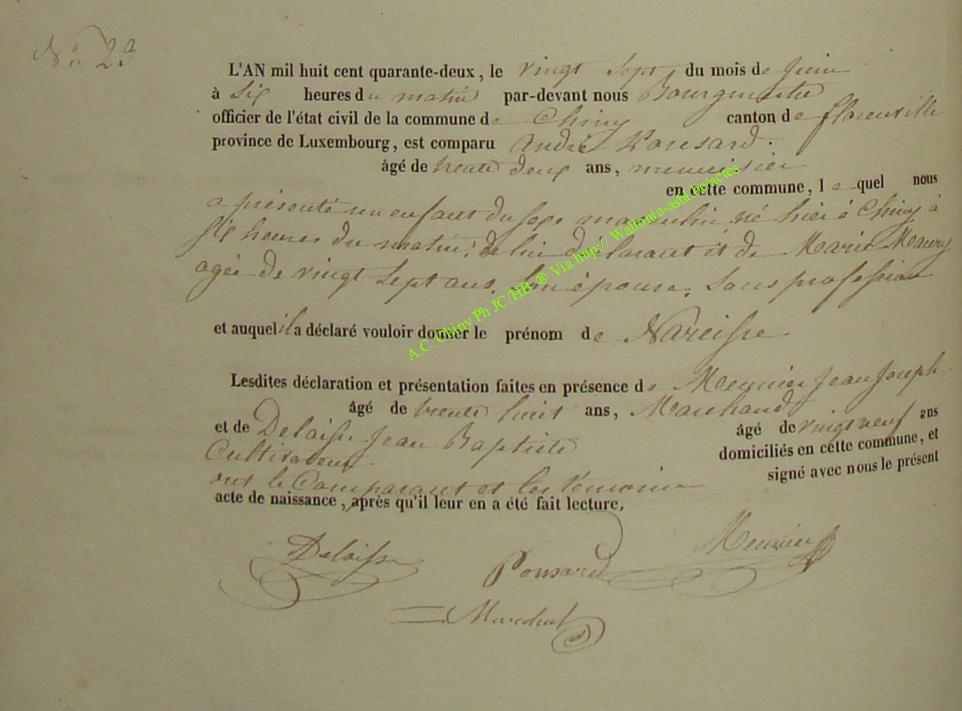 No 23
L'AN mil huit cent quarante-deux, le vingt Sept du mois de Juin
à Six heures du matin par-devant nous Bourgmestre
officier de l'état civil de la commune de Chiny canton de florenville
province de Luxembourg, est comparu André Ponsard.
âgé de trente deux ans, menuisier
en cette commune, le quel nous
a présenté un enfant du sexe masculin, né hier à Chiny à
heures du matin, de lui déclarant et de Marie Maury
agée de vingt Sept ans, Son épouse, Sans profession
et auquel il a déclaré vouloir donner le prénom de Narcisse
Lesdites déclaration et présentation faites en présence de Meunier Jean Joseph
âgé de trente huit ans, Marchand
et de Delaisse Jean Baptiste âgé de vingt neuf ans
Cultivateur domiciliés en cette commune, et
ont le Comparant et les témoins signé avec nous le présent
acte de naissance, après qu'il leur en a été fait lecture.
Delaisse Ponsard Meunier
Marechal
A.C. Chiny Ph JC/HB ® Via http:// Wallonia-asbl.be/actes